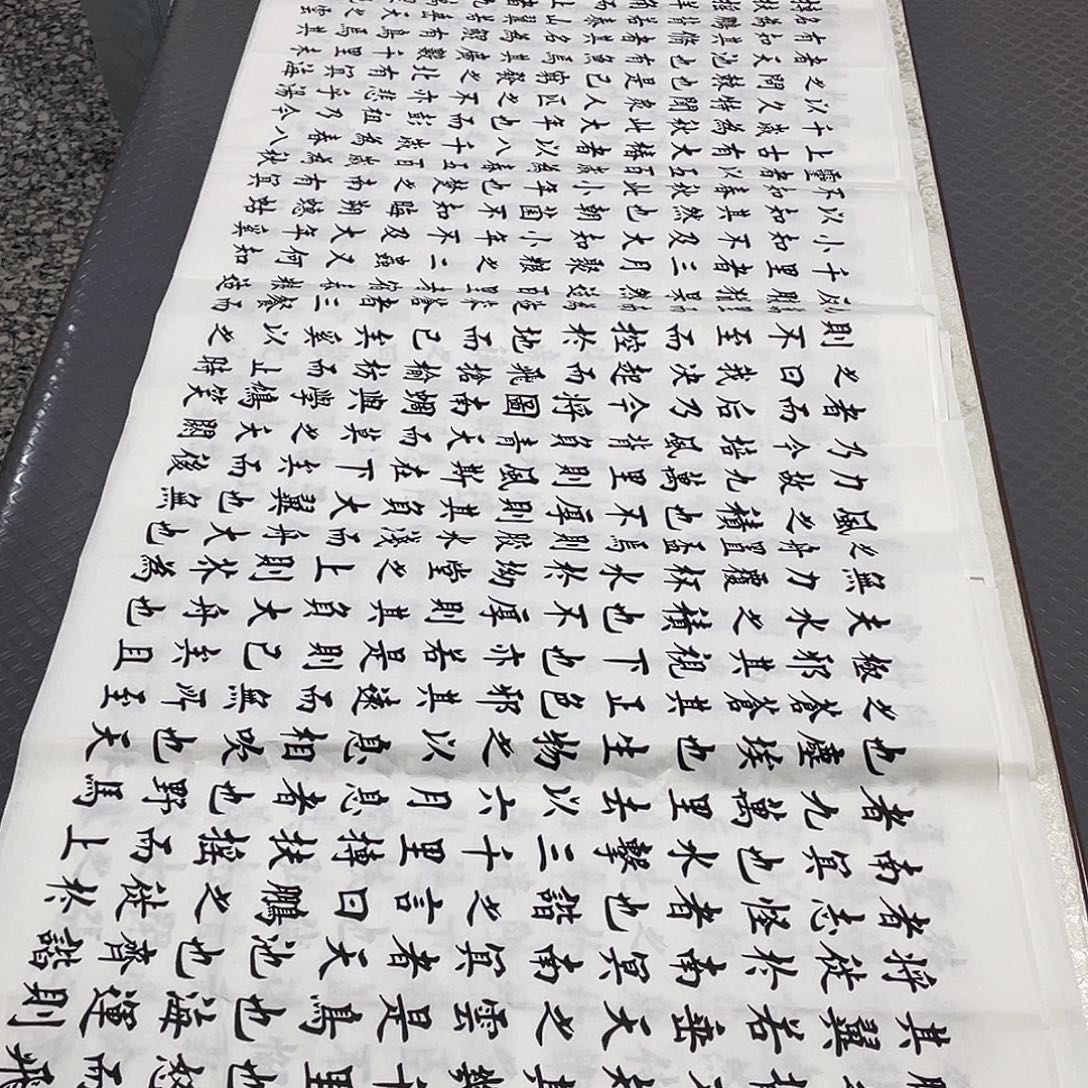 其翼若垂天之雲是鳥也海運則
將徙於南冥南冥者天池也齊諧
者志怪者也諧之言曰鵬之徙於
南冥也水擊三千里摶扶搖而上
者九萬里去以六月息者也野馬
也塵埃也生物之以息相吹也天
之蒼蒼其正色邪其遠而無所至
極邪其視下也亦若是則已矣且
夫水之積也不厚則其負大舟也
無力覆杯水於坳堂之上則芥為
之舟置杯焉則膠水淺而舟大也
風之積也不厚則其負大翼也無
力故九萬里則風斯在下矣而後
乃今培風背負青天而莫之夭閼
者而后乃今將圖南蜩與學鳩笑
之曰我決起而飛搶榆枋而止時
則不至而控於地而已矣奚以之
千里者三月聚糧之二蟲又何知
小知不及大知小年不及大年奚
以知其然也朝菌不知晦朔蟪蛄
不知春秋此小年也楚之南有冥
靈者以五百歲為春五百歲為秋
上古有大椿者以八千歲為春八
千歲為秋此大年也而彭祖乃今
以久特聞眾人匹之不亦悲乎湯
之問棘也是已窮髮之北有冥海
者天池也有魚焉其廣數千里未
有知其脩者其名為鯤有鳥焉其
名為鵬背若泰山翼若垂天之雲